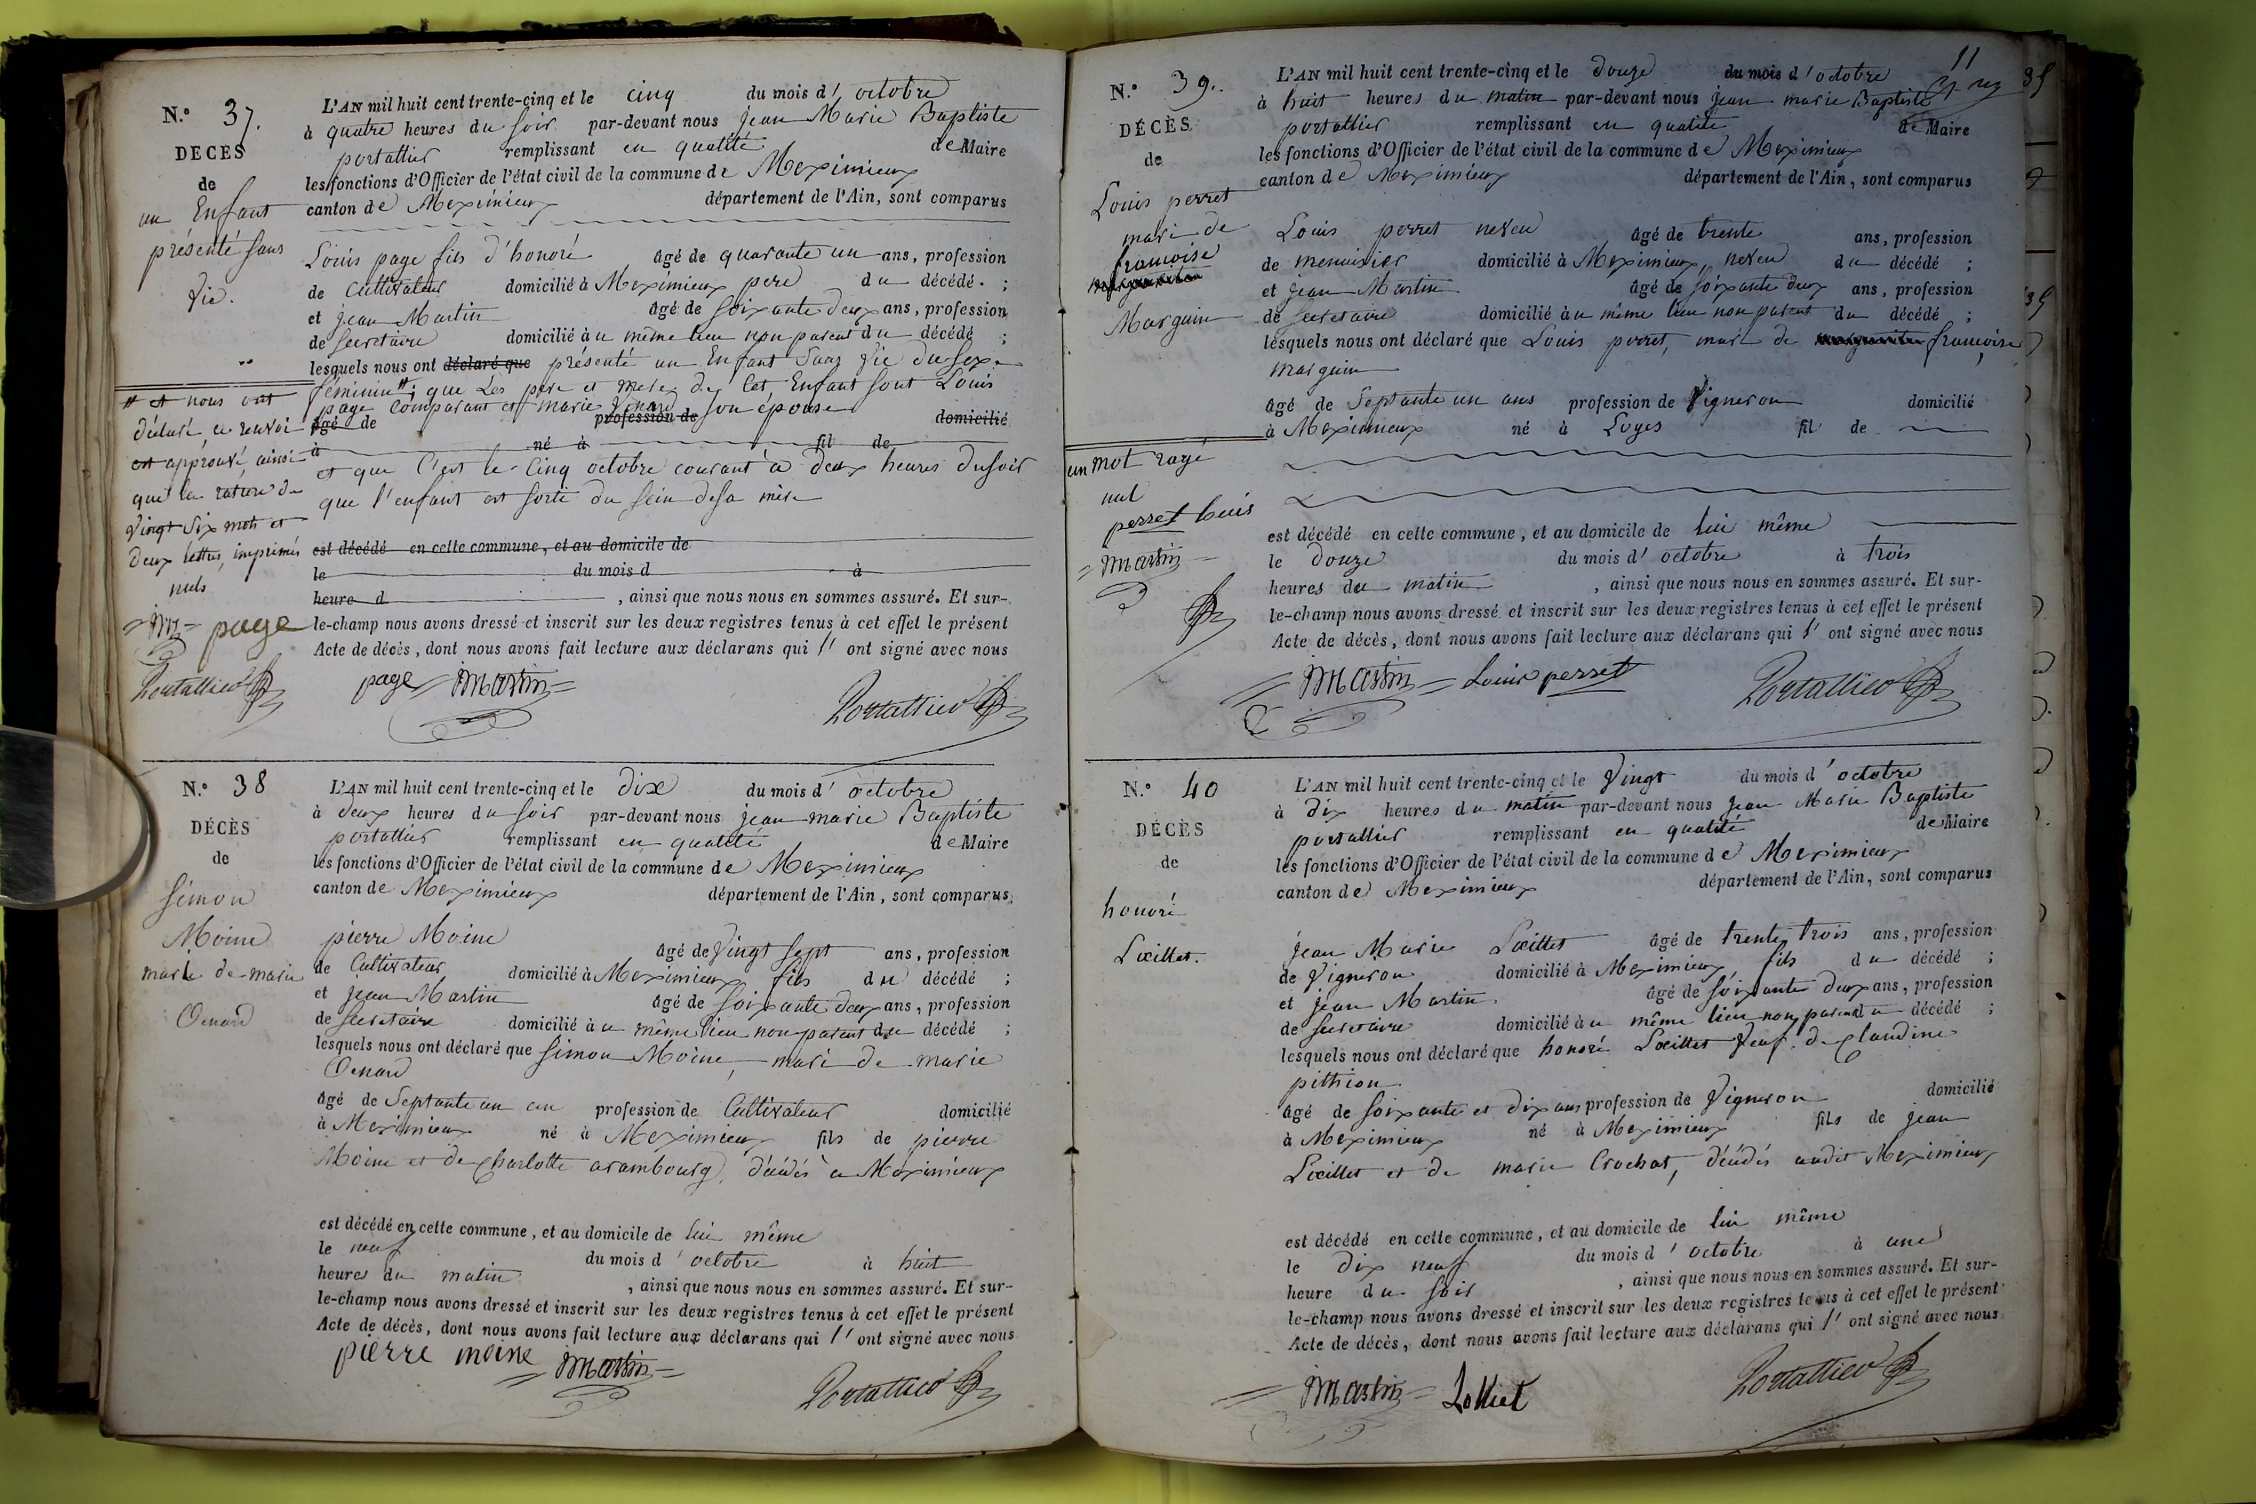 N.° 37.
DÉCÈS
de
un Enfant
présenté sans
vie.
L'AN mil huit cent trente-cinq et le cinq du mois d' octobre
à quatre heures du soir par-devant nous jean Marie Baptiste
portallier remplissant en qualité de Maire
les fonctions d'Officier de l'état civil de la commune de Meximieux
canton de Meximieux département de l'Ain, sont comparus
Louis page fils d'honoré âgé de quarante un ans, profession
de Cultivateur domicilié à Meximieux pere du décédé. ;
et jean Martin âgé de soixante deux ans, profession
de secretaire domicilié à u même lieu non parent du décédé ;
lesquels nous ont déclaré que présenté un Enfant sans vie du sexe
féminin #; que les père et mere de cet Enfant sont Louis
page comparant et marie son épouse
âgé de profession de domicilié
à né à fil de
et que c'est le cinq octobre courant à deux heures du soir
que l'enfant est sorti du sein de sa mère
est décédé en cette commune, et au domicile de
le du mois d à
heure d , ainsi que nous nous en sommes assuré. Et sur-
le-champ nous avons dressé et inscrit sur les deux registres tenus à cet effet le présent
Acte de décès, dont nous avons fait lecture aux déclarans qui l' ont signé avec nous
# et nous ont
déclaré, ce renvoi
est approuvé, ainsi
que la rature de
vingt six mots et
deux lettres, imprimés
nuls
= M = page
Portallier
page = Martin = Portallier
N.° 38
DÉCÈS
de
Simon
Moine
mari de marie
Oenard
L'AN mil huit cent trente-cinq et le dix du mois d' octobre
à deux heures du soir par-devant nous jean marie Baptiste
portallier remplissant en qualité de Maire
les fonctions d'Officier de l'état civil de la commune de Meximieux
canton de Meximieux département de l'Ain, sont comparus
pierre Moine âgé de vingt sept ans, profession
de Cultivateur domicilié à Meximieux fils du décédé ;
et jean Martin âgé de soixante deux ans, profession
de secretaire domicilié à u même lieu non parent du décédé ;
lesquels nous ont déclaré que Simon Moine, mari de marie
Oenard
âgé de Septante un an profession de Cultivateur domicilié
à Meximieux né à Meximieux fils de pierre
Moine et de Charlotte arambourg, décédés à Meximieux
est décédé en cette commune, et au domicile de lui même
le neuf du mois d' octobre à huit
heures du matin , ainsi que nous nous en sommes assuré. Et sur-
le-champ nous avons dressé et inscrit sur les deux registres tenus à cet effet le présent
Acte de décès, dont nous avons fait lecture aux déclarans qui l' ont signé avec nous
pierre moine = Martin = Portallier
11
N.° 39..
DÉCÈS
de
Louis perret
mari de
francoise
Marguin
L'AN mil huit cent trente-cinq et le douze du mois d' octobre
à huit heures du matin par-devant nous jean marie Baptiste
portallier remplissant en qualité de Maire
les fonctions d'Officier de l'état civil de la commune de Meximieux
canton de Meximieux département de l'Ain, sont comparus
Louis perret neveu âgé de trente ans, profession
de menuisier domicilié à Meximieux, neveu du décédé ;
et jean Martin âgé de soixante deux ans, profession
de secretaire domicilié à u même lieu non parent du décédé ;
lesquels nous ont déclaré que Louis perret, mari de francoise
marguin
âgé de Septante un ans profession de Vigneron domicilié
à Meximieux né à Loyes fil de
est décédé en cette commune, et au domicile de lui même
le douze du mois d' octobre à trois
heures du matin , ainsi que nous nous en sommes assuré. Et sur-
le-champ nous avons dressé et inscrit sur les deux registres tenus à cet effet le présent
Acte de décès, dont nous avons fait lecture aux déclarans qui l' ont signé avec nous
un mot rayé
nul
perret Louis
= Martin =
= Martin = Louis perret Portallier
N.° 40
DÉCÈS
de
honoré
Lœillet.
L'AN mil huit cent trente-cinq et le Vingt du mois d' octobre
à dix heures du matin par-devant nous jean Marie Baptiste
portallier remplissant en qualité de Maire
les fonctions d'Officier de l'état civil de la commune de Meximieux
canton de Meximieux département de l'Ain, sont comparus
jean Marie Lœillet âgé de trente trois ans, profession
de Vigneron domicilié à Meximieux fils du décédé ;
et jean Martin âgé de soixante deux ans, profession
de secretaire domicilié à u même lieu non parent du décédé ;
lesquels nous ont déclaré que honoré Lœillet veuf de Claudine
pithion
âgé de soixante et dix ans profession de Vigneron domicilié
à Meximieux né à Meximieux fils de jean
Lœillet et de marie Crochat, décédés audit Meximieux
est décédé en cette commune, et au domicile de lui même
le dix neuf du mois d' octobre à une
heure du soir , ainsi que nous nous en sommes assuré. Et sur-
le-champ nous avons dressé et inscrit sur les deux registres tenus à cet effet le présent
Acte de décès, dont nous avons fait lecture aux déclarans qui l' ont signé avec nous
= Martin = Portallier